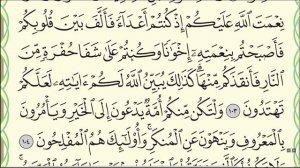 نِعْمَتَ اللَّهِ عَلَيْكُمْ إِذْ كُنتُمْ أَعْدَاءً فَأَلَّفَ بَيْنَ قُلُوبِكُمْ
فَأَصْبَحْتُم بِنِعْمَتِهِ إِخْوَانًا وَكُنتُمْ عَلَىٰ شَفَا حُفْرَةٍ مِّنَ
النَّارِ فَأَنقَذَكُم مِّنْهَا كَذَٰلِكَ يُبَيِّنُ اللَّهُ لَكُمْ آيَاتِهِ لَعَلَّكُمْ
تَهْتَدُونَ ١٠٣ وَلْتَكُن مِّنكُمْ أُمَّةٌ يَدْعُونَ إِلَى الْخَيْرِ وَيَأْمُرُونَ
بِالْمَعْرُوفِ وَيَنْهَوْنَ عَنِ الْمُنكَرِ وَأُولَٰئِكَ هُمُ الْمُفْلِحُونَ ١٠٤